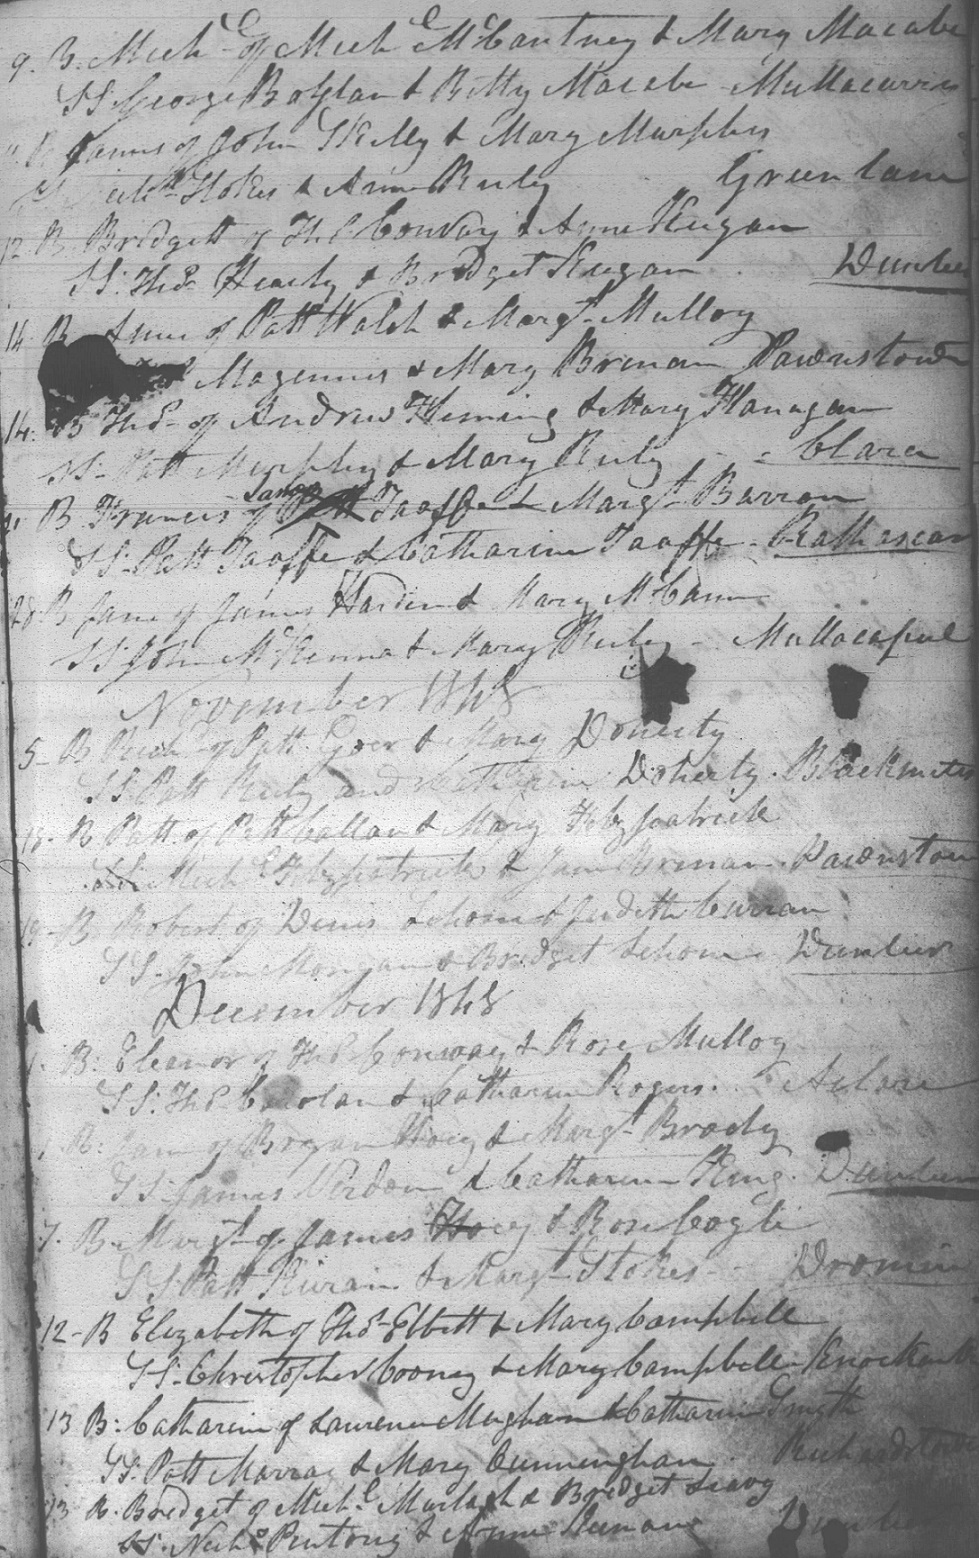 9. B. Mich.l of Mich.l McCantney & Mary Macabe
SS. George Boylan & Betty Macabe Mullacurry
B James of John Skelly & Mary Murphy
Stokes & Anne Reily Greenlane
12 B. Bridgett of Tho.s Conway & Anne Keegan
SS. Tho.s Hearty & Bridget Keegan Dunleer
14 B Anne of Patt Walsh & Marg.t Mulloy
Magennis & Mary Brenan Pawnstown
14. B Tho.s of Andrew Fleming & Mary Flanagan
SS. Patt Murphy & Mary Reily Clare
B Francis of James Taaffe & Marg.t Barron
SS. Patt Taaffe & Catharine Taaffe
28 B Jane of James Hardin & Mary McCann
SS. John McKenna & Mary Reily - Mullacapul
November 1848
5 - B Rich.d of Patt & Mary Doherty
SS. Patt Reily and Catharine Doherty.
B Patt. of Patt Callan & Mary Fitzpatrick
SS. Mich.l Fitzpatrick & Jane Brenan. Pawnstown
19 - B. Robert of Denis & Judith Curran
SS. John Morgan & Bridget Dunleer
December 1848
1. B: Eleanor of Tho.s Conway & Rose Mulloy
SS. Tho.s Carolan & Catharine Rogers.
B: Jane of Bryan Hoey & Marg.t Brady
SS. James Verdon & Catharine King. Dunleer
7. B. Marg.t of James Hoey & Rose Coyle
SS. Patt Kieran & Marg.t Stokes - Dromin
12 - B Elizabeth of Tho.s Elbett & Mary Campbell
SS. Christopher Cooney & Mary Campbell -
13 B: Catharine of Laurence Meegham & Catharine Smyth
SS. Patt Murray & Mary Cunningham
13 B. Bridget of Mich.l Murtagh & Bridget Leavy
SS. Nich.s & Anne Keenan Dunleer